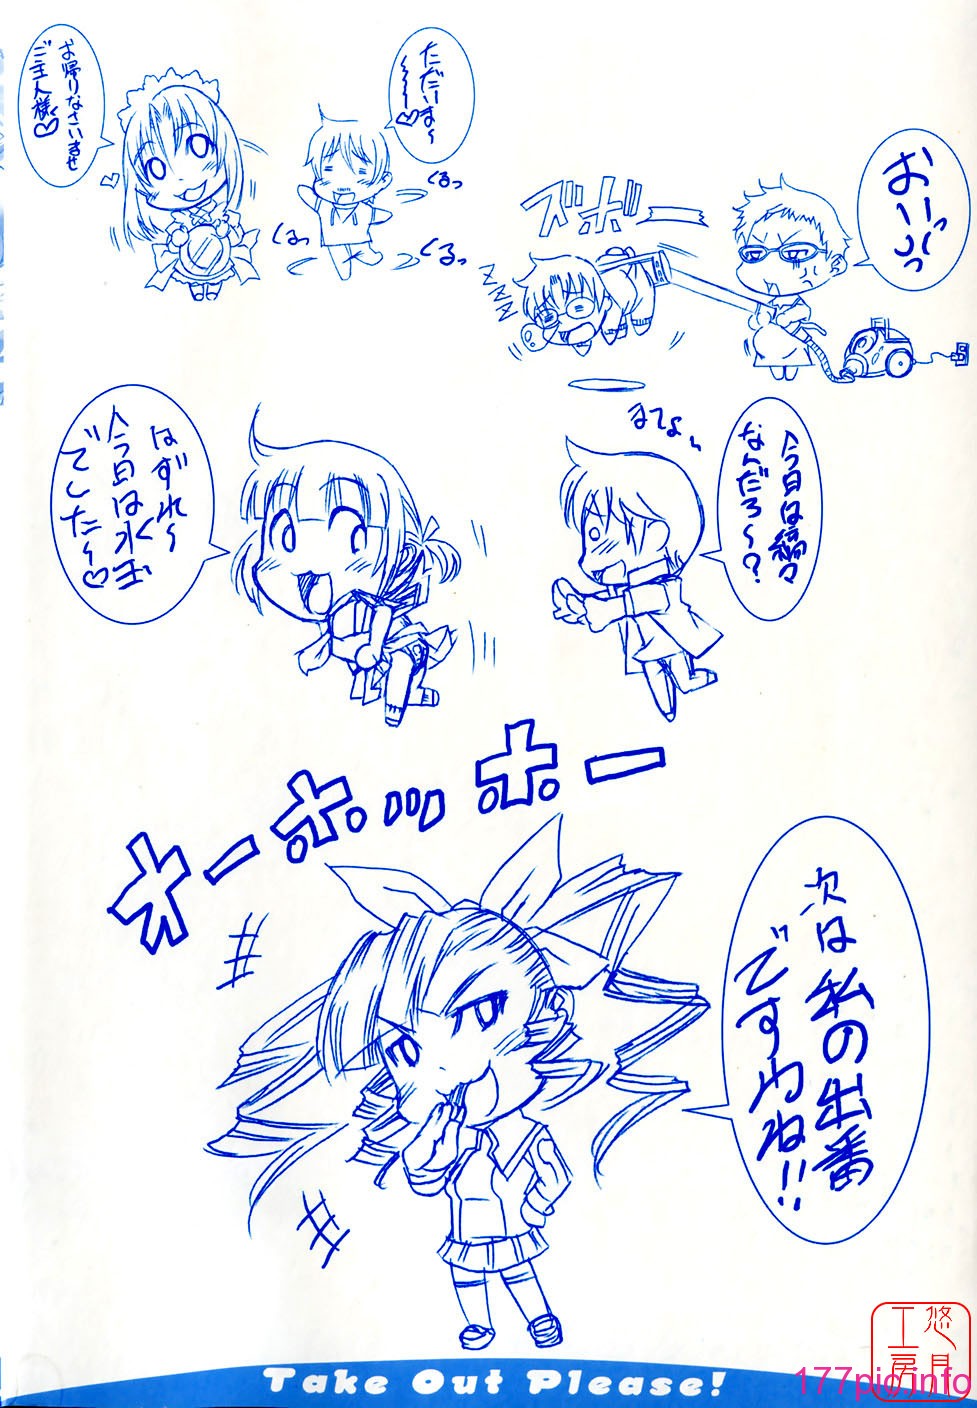 ただいま〜
〜〜〜♡
お帰りなさいませ
ご主人様♡
くるっ
くるっ
くるっ
おいっっ
ズボーー
ZZZZ
今日は縞々
なんだろ〜?
まてよぃ
はずれ〜
今日は水玉
でした〜♡
オーホッホー
次は私の出番
ですわね!!
Take Out Please!
悠月工房
177pic.info